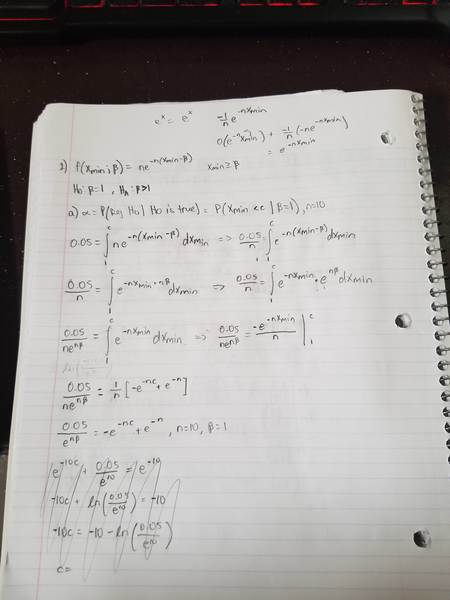 eˣ = eˣ   -1/n e^(-nXmin)
0(e^(-nXmin)) + -1/n (-ne^(-nXmin))
= e^(-nXmin)
f(Xmin; β) = ne^(-n(Xmin-β))   Xmin ≥ β
H₀: β=1, Hₐ: β>1
a) α = P(Rej H₀ | H₀ is true) = P(Xmin < c | β=1), n=10
0.05 = ∫₁ᶜ ne^(-n(Xmin-β)) dXmin => 0.05/n = ∫₁ᶜ e^(-n(Xmin-β)) dXmin
0.05/n = ∫₁ᶜ e^(-nXmin+nβ) dXmin => 0.05/n = ∫₁ᶜ e^(-nXmin) · e^(nβ) dXmin
0.05/ne^(nβ) = ∫₁ᶜ e^(-nXmin) dXmin => 0.05/ne^(nβ) = -e^(-nXmin)/n |₁ᶜ
0.05/ne^(nβ) = 1/n [-e^(-nc) + e^(-n)]
0.05/e^(nβ) = -e^(-nc) + e^(-n), n=10, β=1
e^(-10c) + 0.05/e^(10) = e^(-10)
-10c + ln(0.05/e^(10)) = -10
-10c = -10 - ln(0.05/e^(10))
c =